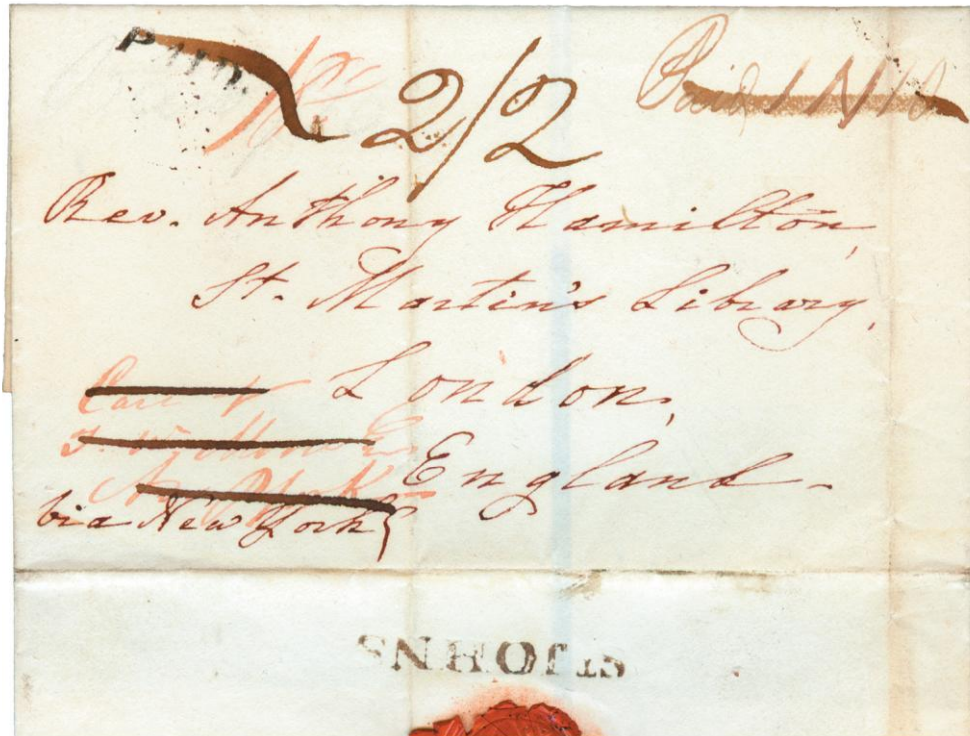 PAID.
2/2
Paid
Rev. Anthony Hamilton,
St. Martin's Library,
London,
England.
Care
New York
via New York
ST JOHNS